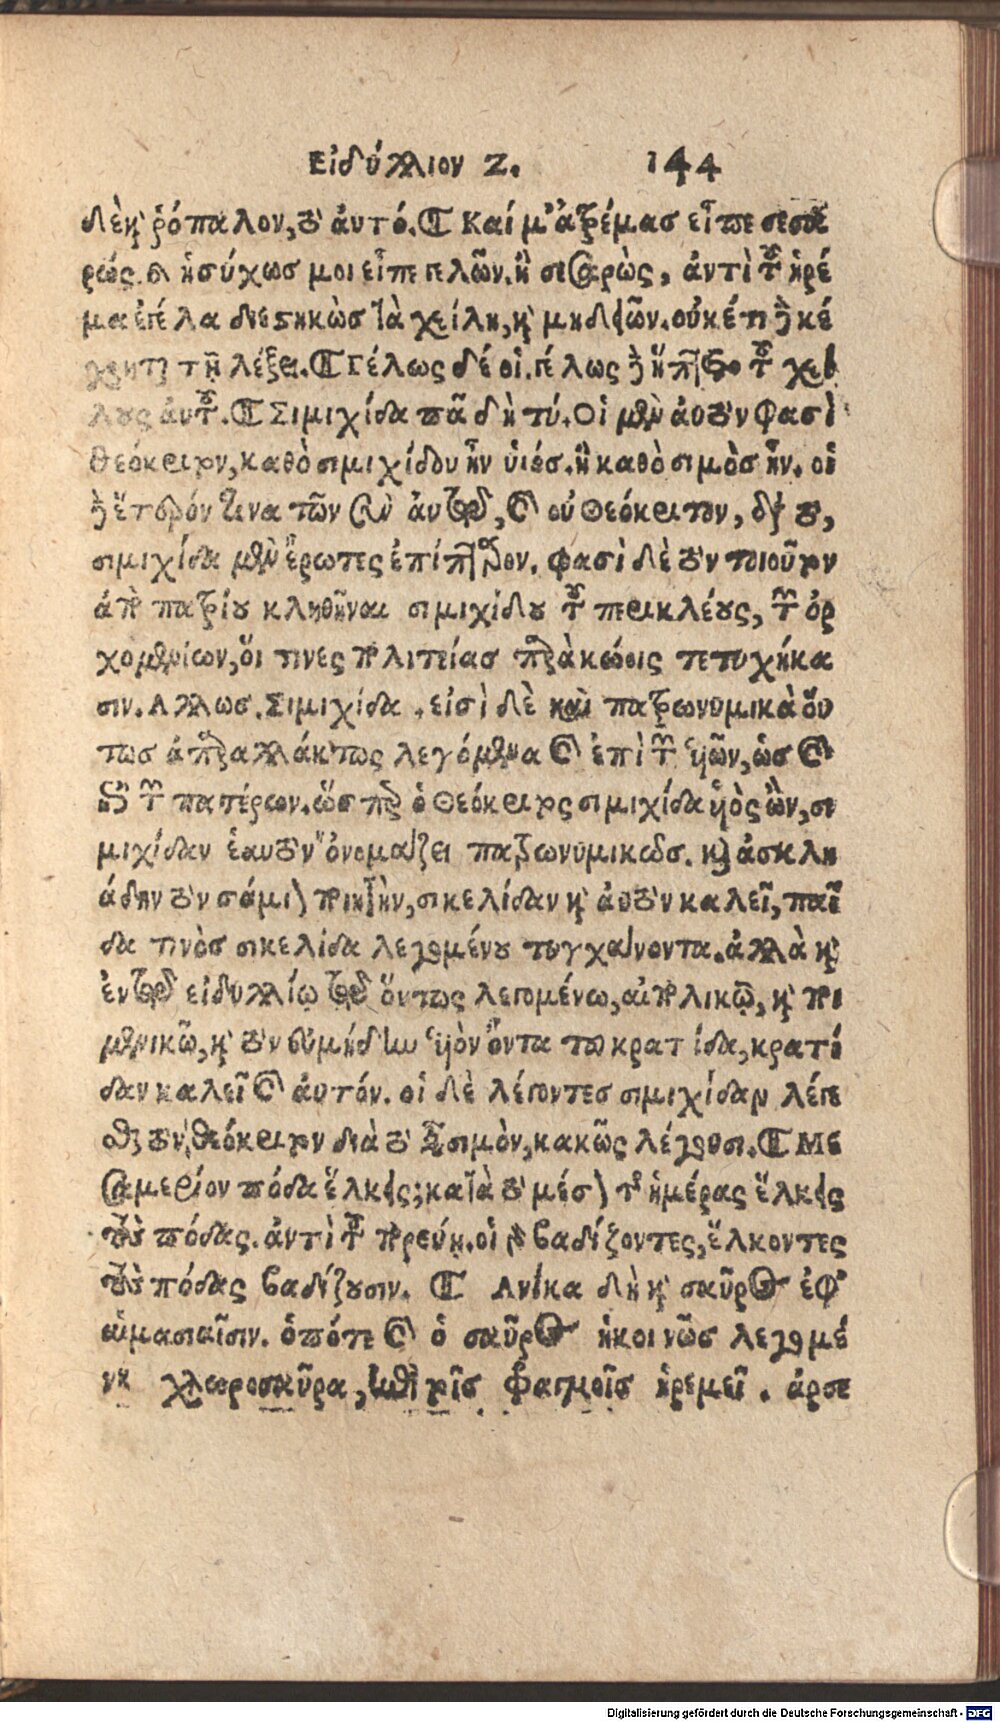 Εἰδύλλιον Ζ. 144
δὲ καὶ ῥόπαλον, τὸ αὐτό. ¶ Καί μ' ἀτρέμας εἶπε σεσα
ρώς. καὶ ἡσύχως μοι εἶπε γελῶν. ἢ σεσαρὼς, ἀντὶ τοῦ ἠρέ
μα ἐγέλα διεστηκὼς τὰ χείλη, καὶ μηδιῶν. οὐκέτι δὲ κέ
χρηται τῇ λέξει. ¶ Γέλως δέ οἱ. γέλως δὲ ἤπτετο τοῦ χεί
λους αὐτοῦ. ¶ Σιμιχίδα πᾶ δὴ τύ. Οἱ μὲν αὐτὸν φασὶ
Θεόκριτον, καθὸ σιμιχίδου ἦν ὑιός. ἢ καθὸ σιμὸς ἦν. οἱ
δὲ ἕτερόν τινα τῶν σὺν αὐτῷ, καὶ οὐ Θεόκριτον, διὰ τὸ,
σιμιχίδα μὲν ἔρωτες ἐπέπταρον. φασὶ δὲ τὸν τοιοῦτον
ἀπὸ πατρίου κληθῆναι σιμιχίδου τοῦ περικλέους, τῶν ὀρ
χομενίων, οἵ τινες πολιτείας παρὰ κώοις τετυχήκα
σιν. Αλλως. Σιμιχίδα. εἰσὶ δὲ καὶ πατρωνυμικὰ οὕ
τως ἀπαραλλάκτως λεγόμενα καὶ ἐπὶ τῶν ὑῶν, ὡς καὶ
ἐπὶ τῶν πατέρων. ὥσπερ ὁ Θεόκριτος σιμιχίδα ὑὸς ὢν, σι
μιχίδαν ἑαυτὸν ὀνομάζει πατρωνυμικῶς. καὶ ἀσκλη
άδην τὸν σάμιον ποιητὴν, σικελίδαν καὶ αὐτὸν καλεῖ, παῖ
δα τινὸς σικελίδα λεγομένου τυγχάνοντα. ἀλλὰ καὶ
ἐν τῷ εἰδυλλίῳ τῷ ὄντως λεγομένῳ, αἰπολικῷ, καὶ ποι
μενικῷ, καὶ τὸν εὐμήδην ὑὸν ὄντα του κρατίδα, κρατί
δαν καλεῖ καὶ αὐτόν. οἱ δὲ λέγοντες σιμιχίδαν λέγε
σθαι τὸν θεόκριτον διὰ τὸ εἶναι σιμὸν, κακῶς λέγουσι. ¶ Με
σαμερίον πόδα ἕλκεις; κατὰ τὸ μέσον τῆς ἡμέρας ἕλκεις
τοὺς πόδας. ἀντὶ τοῦ πορεύῃ. οἱ γὰρ βαδίζοντες, ἕλκοντες
τοὺς πόδας βαδίζουσιν. ¶ Ανίκα δὴ καὶ σαῦρος ἐφ'
αἱμασιαῖσιν. ὁπότε καὶ ὁ σαῦρος ἡ κοινῶς λεγομέ
νη χλωροσαῦρα, ἐπὶ τοῖς φραγμοῖς ἠρεμεῖ. ἀρσε
Digitalisierung gefördert durch die Deutsche Forschungsgemeinschaft - DFG